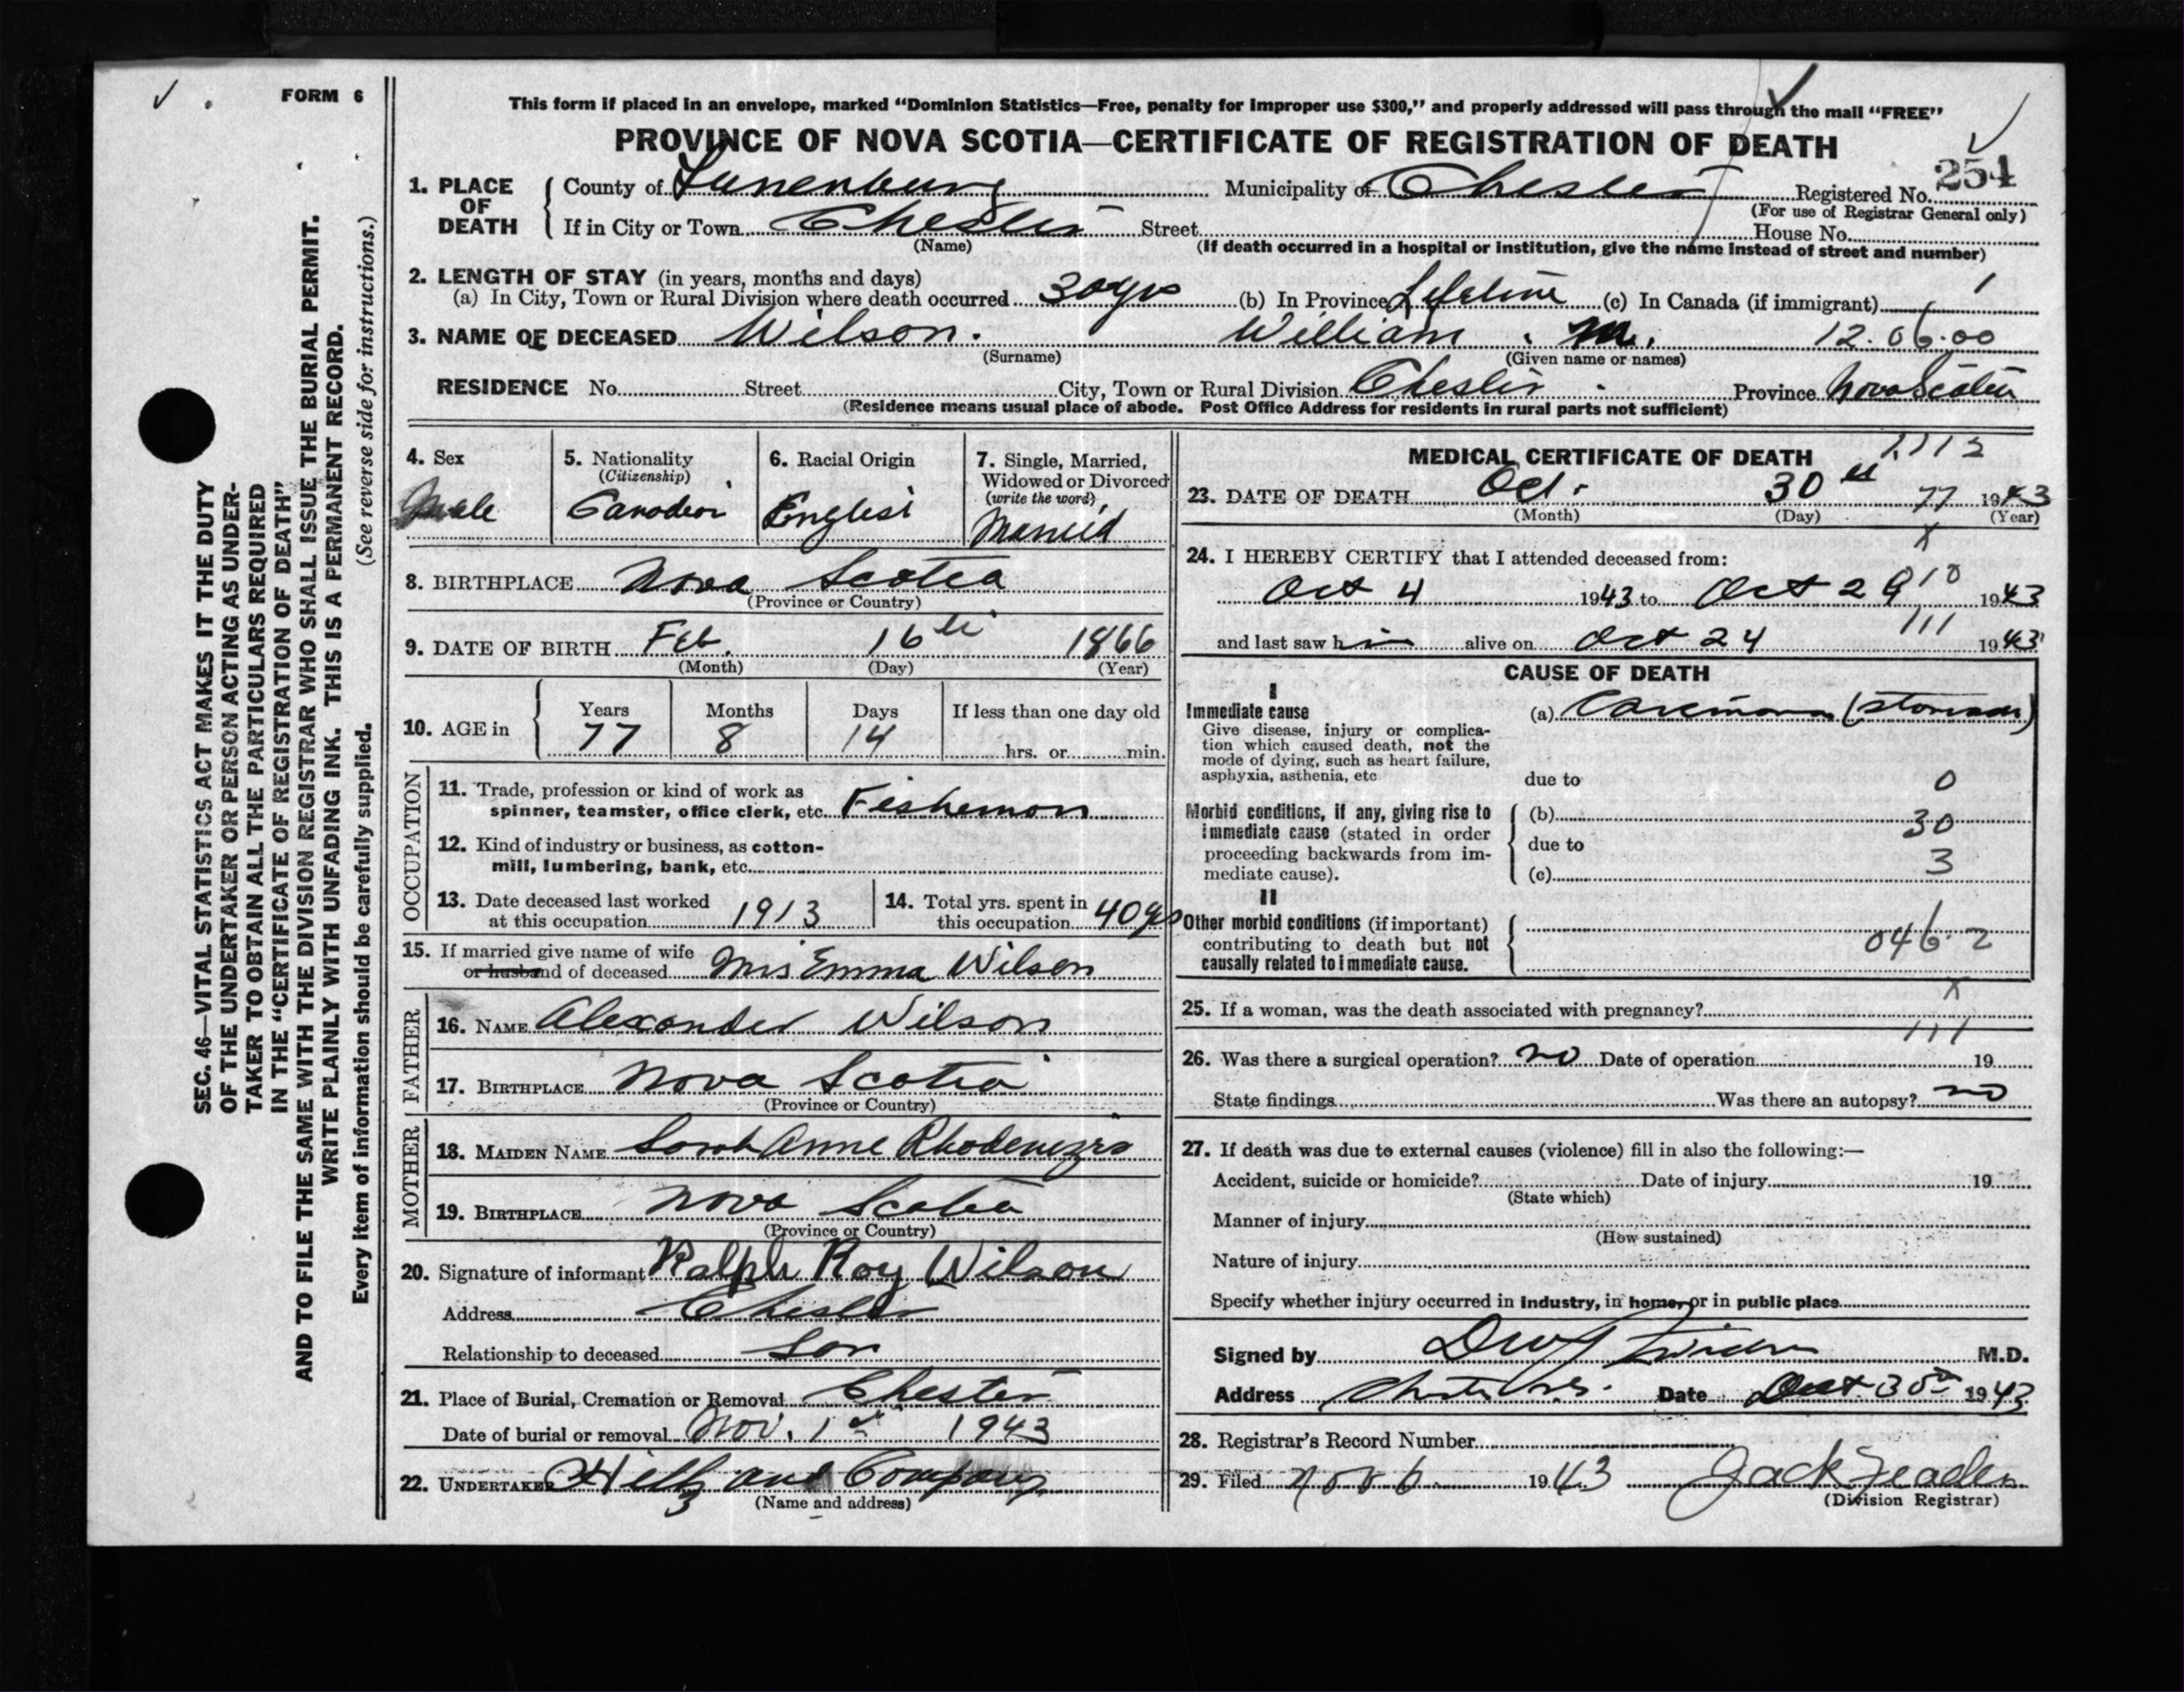 FORM 6
This form if placed in an envelope, marked "Dominion Statistics—Free, penalty for improper use $300," and properly addressed will pass through the mail "FREE"
PROVINCE OF NOVA SCOTIA—CERTIFICATE OF REGISTRATION OF DEATH
254
1. PLACE OF DEATH
County of Lunenburg Municipality of Chester Registered No.
(For use of Registrar General only)
If in City or Town Chester Street House No.
(Name) (If death occurred in a hospital or institution, give the name instead of street and number)
2. LENGTH OF STAY (in years, months and days)
(a) In City, Town or Rural Division where death occurred 30 yrs (b) In Province Lifetime (c) In Canada (if immigrant)
3. NAME OF DECEASED Wilson. William M. 12.06.00
(Surname) (Given name or names)
RESIDENCE No. Street City, Town or Rural Division Chester Province Nova Scotia
(Residence means usual place of abode. Post Office Address for residents in rural parts not sufficient)
4. Sex
Male
5. Nationality
(Citizenship)
Canadian
6. Racial Origin
English
7. Single, Married, Widowed or Divorced
(write the word)
Married
8. BIRTHPLACE Nova Scotia
(Province or Country)
9. DATE OF BIRTH Feb. 16th 1866
(Month) (Day) (Year)
10. AGE in
Years Months Days If less than one day old
77 8 14 hrs. or min.
OCCUPATION
11. Trade, profession or kind of work as
spinner, teamster, office clerk, etc. Fisherman
12. Kind of industry or business, as cotton-
mill, lumbering, bank, etc.
13. Date deceased last worked
at this occupation 1913
14. Total yrs. spent in
this occupation 40 yrs
15. If married give name of wife
or husband of deceased Mrs Emma Wilson
FATHER
16. NAME Alexander Wilson
17. BIRTHPLACE Nova Scotia
(Province or Country)
MOTHER
18. MAIDEN NAME Sarah Anne
19. BIRTHPLACE Nova Scotia
(Province or Country)
20. Signature of informant Ralph Roy Wilson
Address Chester
Relationship to deceased Son
21. Place of Burial, Cremation or Removal Chester
Date of burial or removal Nov. 1st 1943
22. UNDERTAKER and Company
(Name and address)
MEDICAL CERTIFICATE OF DEATH
1112
23. DATE OF DEATH Oct. 30 77 1943
(Month) (Day) (Year)
X
24. I HEREBY CERTIFY that I attended deceased from:
Oct 4 1943 to Oct 29 1943
and last saw him alive on Oct 24 1943
111
CAUSE OF DEATH
I
Immediate cause
Give disease, injury or complica-
tion which caused death, not the
mode of dying, such as heart failure,
asphyxia, asthenia, etc
(a) Carcinoma (stomach)
due to
0
Morbid conditions, if any, giving rise to
immediate cause (stated in order
proceeding backwards from im-
mediate cause).
(b) 30
due to
3
(c)
II
Other morbid conditions (if important)
contributing to death but not
causally related to immediate cause.
046.2
X
25. If a woman, was the death associated with pregnancy?
111
26. Was there a surgical operation? no Date of operation 19
State findings Was there an autopsy? no
27. If death was due to external causes (violence) fill in also the following:—
Accident, suicide or homicide? Date of injury 19
(State which)
Manner of injury
(How sustained)
Nature of injury
Specify whether injury occurred in industry, in home, or in public place
Signed by M.D.
Address Date Oct 30 1943
28. Registrar's Record Number
29. Filed Nov 6 1943 Jack
(Division Registrar)
SEC. 46—VITAL STATISTICS ACT MAKES IT THE DUTY
OF THE UNDERTAKER OR PERSON ACTING AS UNDER-
TAKER TO OBTAIN ALL THE PARTICULARS REQUIRED
IN THE "CERTIFICATE OF REGISTRATION OF DEATH"
AND TO FILE THE SAME WITH THE DIVISION REGISTRAR WHO SHALL ISSUE THE BURIAL PERMIT.
WRITE PLAINLY WITH UNFADING INK. THIS IS A PERMANENT RECORD.
Every item of information should be carefully supplied. (See reverse side for instructions.)